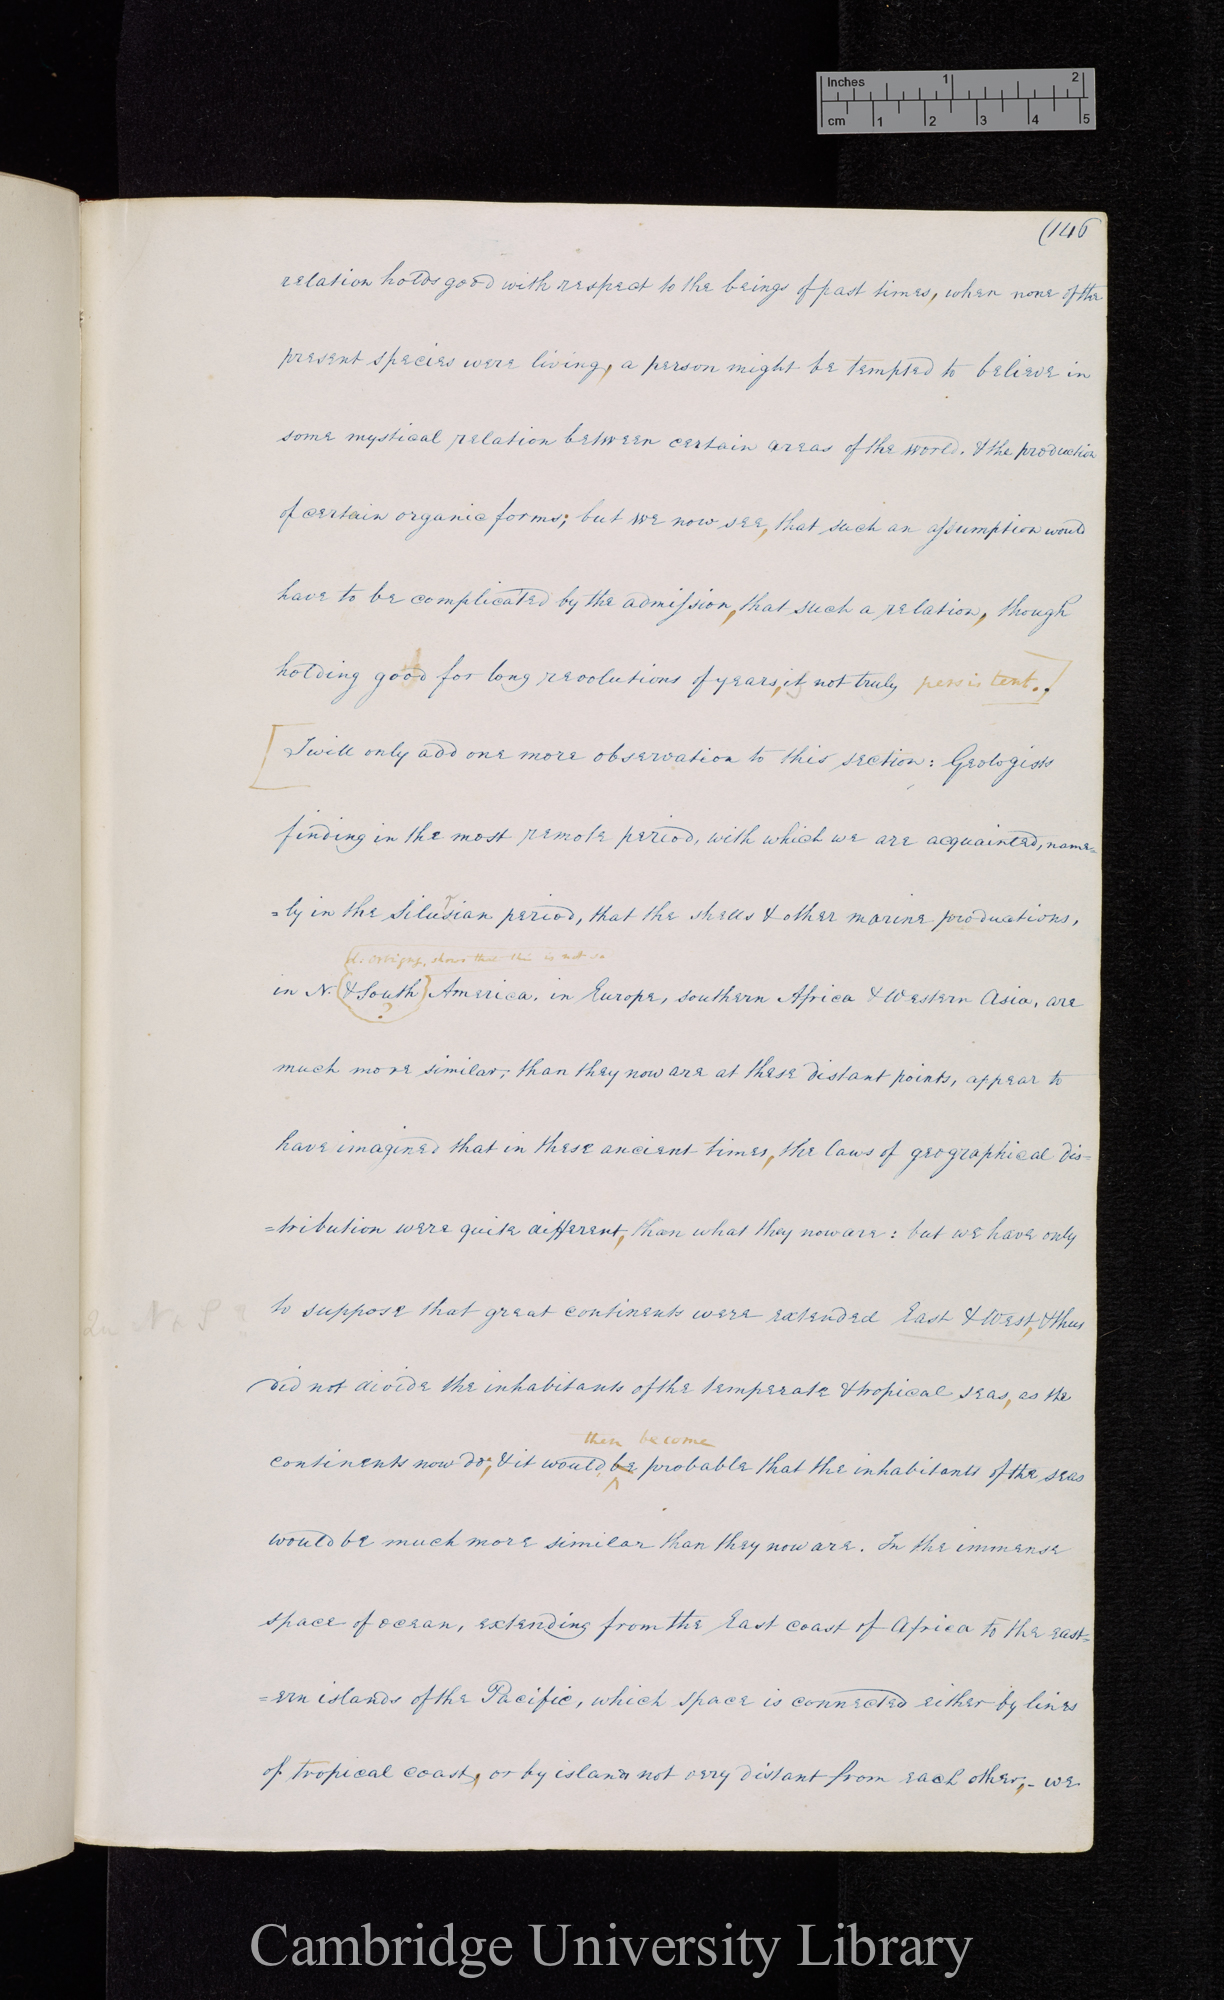 Inches 1 2
cm 1 2 3 4 5
(146
relation holds good with respect to the beings of past times, when none of the
present species were living, a person might be tempted to believe in
some mystical relation between certain areas of the world, & the production
of certain organic forms; but we now see, that such an assumption would
have to be complicated by the admission, that such a relation, though
holding good for long revolutions of years, is not truly persistent.]
[I will only add one more observation to this section: Geologists
finding in the most remote period, with which we are acquainted, name=
=ly in the Silurian period, that the shells & other marine productions,
d'Orbigny, shows that this is not so
in N. (& South) America, in Europe, southern Africa & Western Asia, are
?
much more similar, than they now are at these distant points, appear to
have imagined that in these ancient times, the laws of geographical dis=
=tribution were quite different, than what they now are: but we have only
N & S?
to suppose that great continents were extended East & West, & thus
did not divide the inhabitants of the temperate & tropical seas, as the
then become
continents now do; & it would be probable that the inhabitants of the seas
would be much more similar than they now are. In the immense
space of ocean, extending from the East coast of Africa to the east=
=ern islands of the Pacific, which space is connected either by lines
of tropical coast, or by islands not very distant from each other, - we
Cambridge University Library